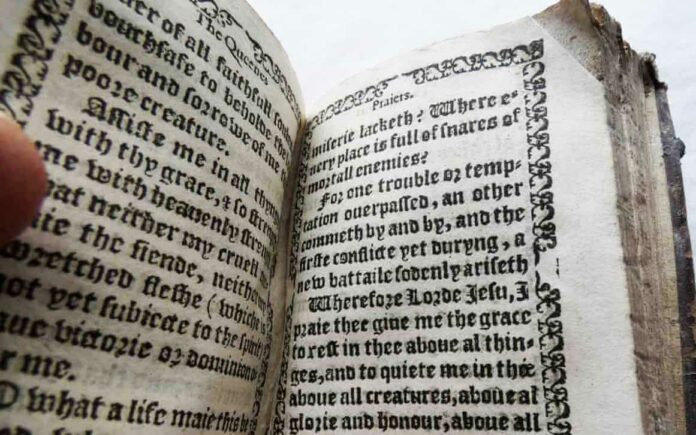 The Queenes
er of all faithfull
vouchsafe to beholde the
bour and sorrowe of me
poore creature.
Assiste me in all thyn
with thy grace, & so stren
me with heavenly stren
hat neither my cruell
ie the fiende, neither
wretched fleshe (whiche is
not yet subiecte to the spirit
aue victorie or dominion
r me.
O what a life maie this be
Praiers.
miserie lacketh? Where e-
uery place is full of snares of
mortall enemies?
For one trouble or temp-
tation ouerpassed, an other
commeth by and by, and the
firste conflicte yet duryng, a
new battaile sodenly ariseth
Wherefore Lorde Iesu, I
praie thee giue me the grace
to rest in thee aboue al thin-
ges, and to quiete me in thee
aboue all creatures, aboue al
glorie and honour, aboue all